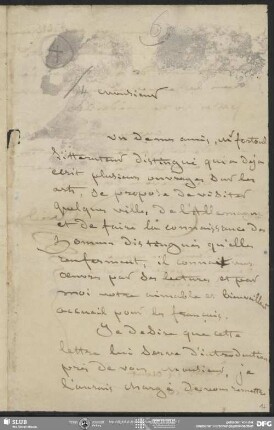 monsieur
un de mes amis, mr
littérateur distingué qui a deja
ecrit plusieurs ouvrages sur les
arts, se propose de visiter
quelques villes de l'Allemagne
et de faire la connaissance des
hommes distingués qu'elles
renferment, il connait vos
oeuvres par ses lectures et par
moi votre aimable et bienveillant
accueil pour les français.
Je desire que cette
lettre lui serve d'introduction
près de vous, monsieur, je
l'aurais chargé de vous remettre
SLUB
DFG